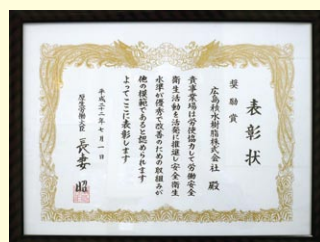 表彰状
奨励賞
広島積水樹脂株式会社 殿
貴事業場は労使協力して労働安全
衛生活動を活発に推進し安全衛生
水準が優秀で改善のための取組みが
他の模範であると認められます
よってここに表彰します
平成二十二年七月一日
厚生労働大臣 長妻 昭